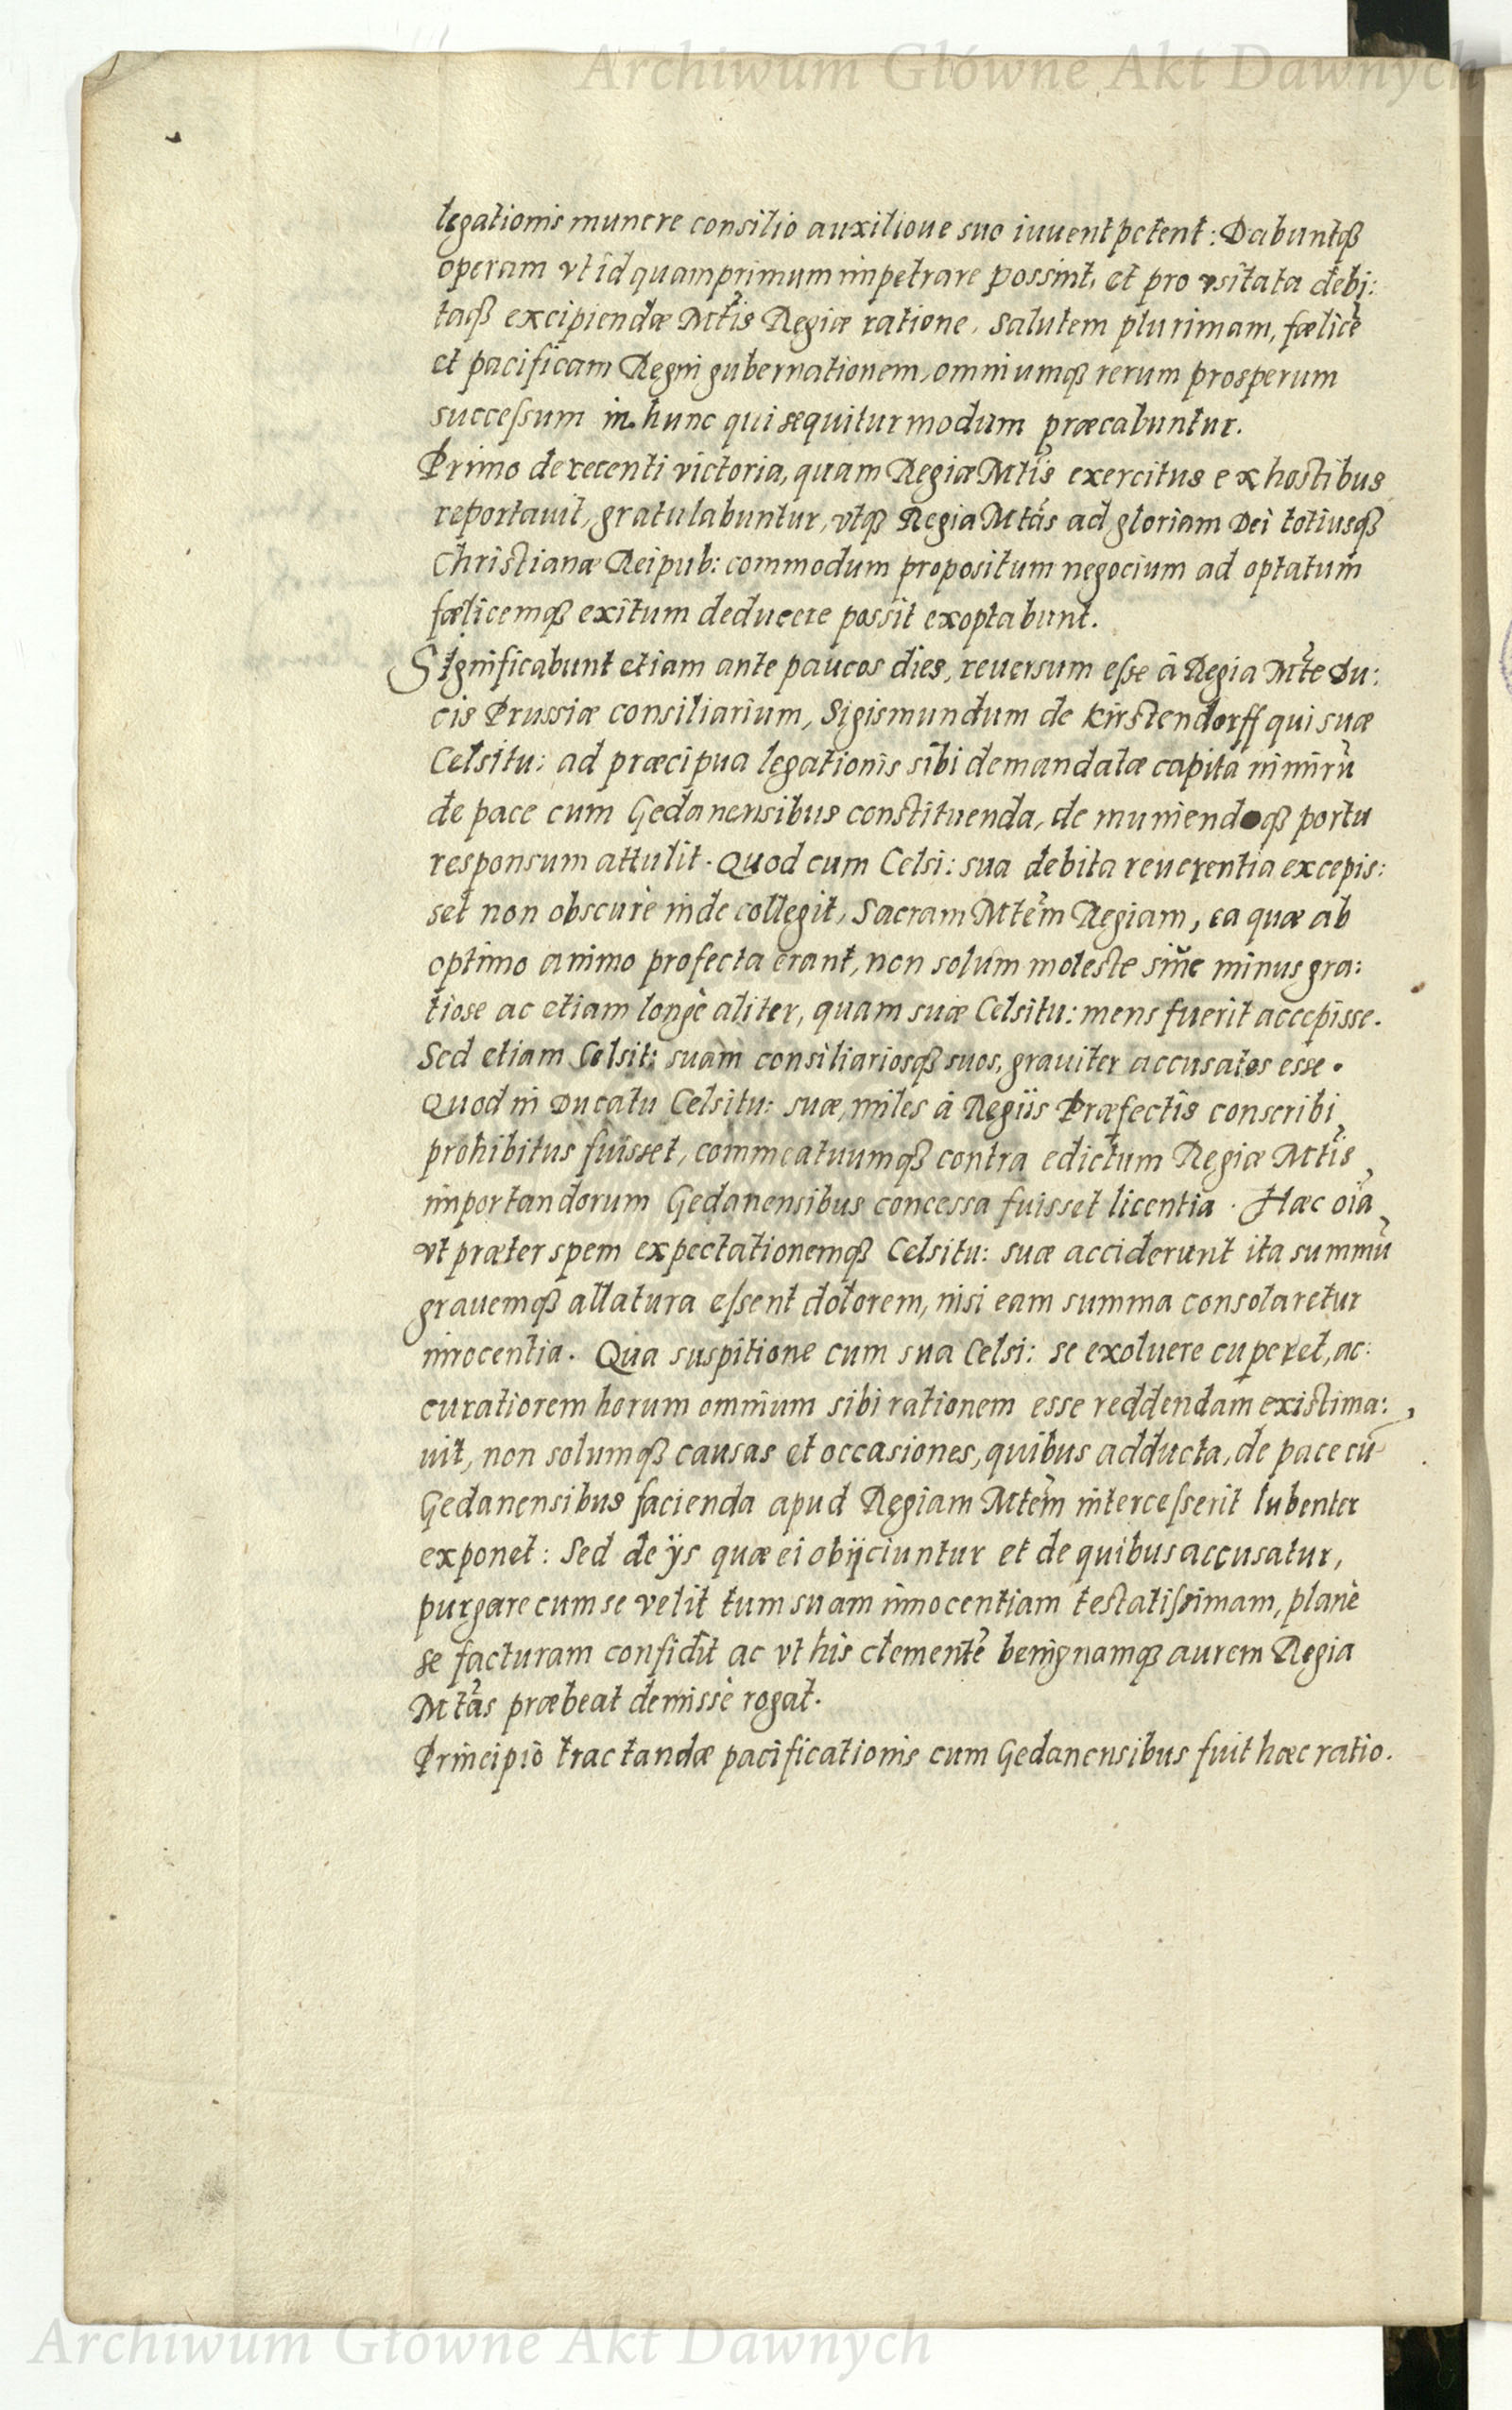 Archiwum Główne Akt Dawnych
legationis munere consilio auxilioue suo iuuent petent: Dabuntq́ꝫ
operam vt id quamprimum impetrare possint, et pro vsitata debi:
taq́ꝫ excipiendæ Mtis Regiæ ratione, Salutem plurimam, fælicē
et pacificam Regni gubernationem, omniumq́ꝫ rerum prosperum
succeſsum in hunc qui sequitur modum præcabuntur.
Primo de recenti victoria, quam Regiæ Mtis exercitus ex hostibus
reportauit, gratulabuntur, vtq́ꝫ Regia Mtás ad gloriam Dei totiusq́ꝫ
Christianæ Reipub: commodum propositum negocium ad optatum
fælicemq́ꝫ exitum deducere possit exoptabunt.
Significabunt etiam ante paucos dies, reuersum eſse â Regia Mte Du:
cis Prussiæ consiliarium, Sigismundum de Kirstendorff qui suæ
Celsitu: ad præcipua legationis sibi demandatæ capita nimirū
de pace cum Gedanensibus constituenda, de muniendoq́ꝫ portu
responsum attulit. Quod cum Celsi: sua debita reuerentia excepis:
set non obscurè inde collegit, Sacram Mtem Regiam, ea quæ ab
optimo animo profecta erant, non solum moleste siue minus gra:
tiose ac etiam longè aliter, quam suæ Celsitu: mens fuerit accepisse.
Sed etiam Celsit: suam consiliariosq́ꝫ suos, grauiter accusatos esse.
Quod in Ducatu Celsitu: suæ, miles à Regiis Præfectis conscribi
prohibitus fuisset, commeatuumq́ꝫ contra edictum Regiæ Mtis
importandorum Gedanensibus concessa fuisset licentia. Hæc oīa
vt præter spem expectationemq́ꝫ Celsitu: suæ acciderunt ita summū
grauemq́ꝫ allatura eſsent dolorem, nisi eam summa consolaretur
innocentia. Qua suspitione cum sua Celsi: se exoluere cuperet, ac:
curatiorem horum omnium sibi rationem esse reddendam existima:
uit, non solumq́ꝫ causas et occasiones, quibus adducta, de pace cū
Gedanensibus facienda apud Regiam Mtem interceſserit lubenter
exponet: Sed de ijs quæ ei obijciuntur et de quibus accusatur,
purgare cum se velit tum suam innocentiam testatiſsimam, planè
se facturam confidit ac vt his clementē benignamq́ꝫ aurem Regia
Mtas præbeat demissè rogat.
Principio tractandæ pacificationis cum Gedanensibus fuit hæc ratio.
Archiwum Główne Akt Dawnych